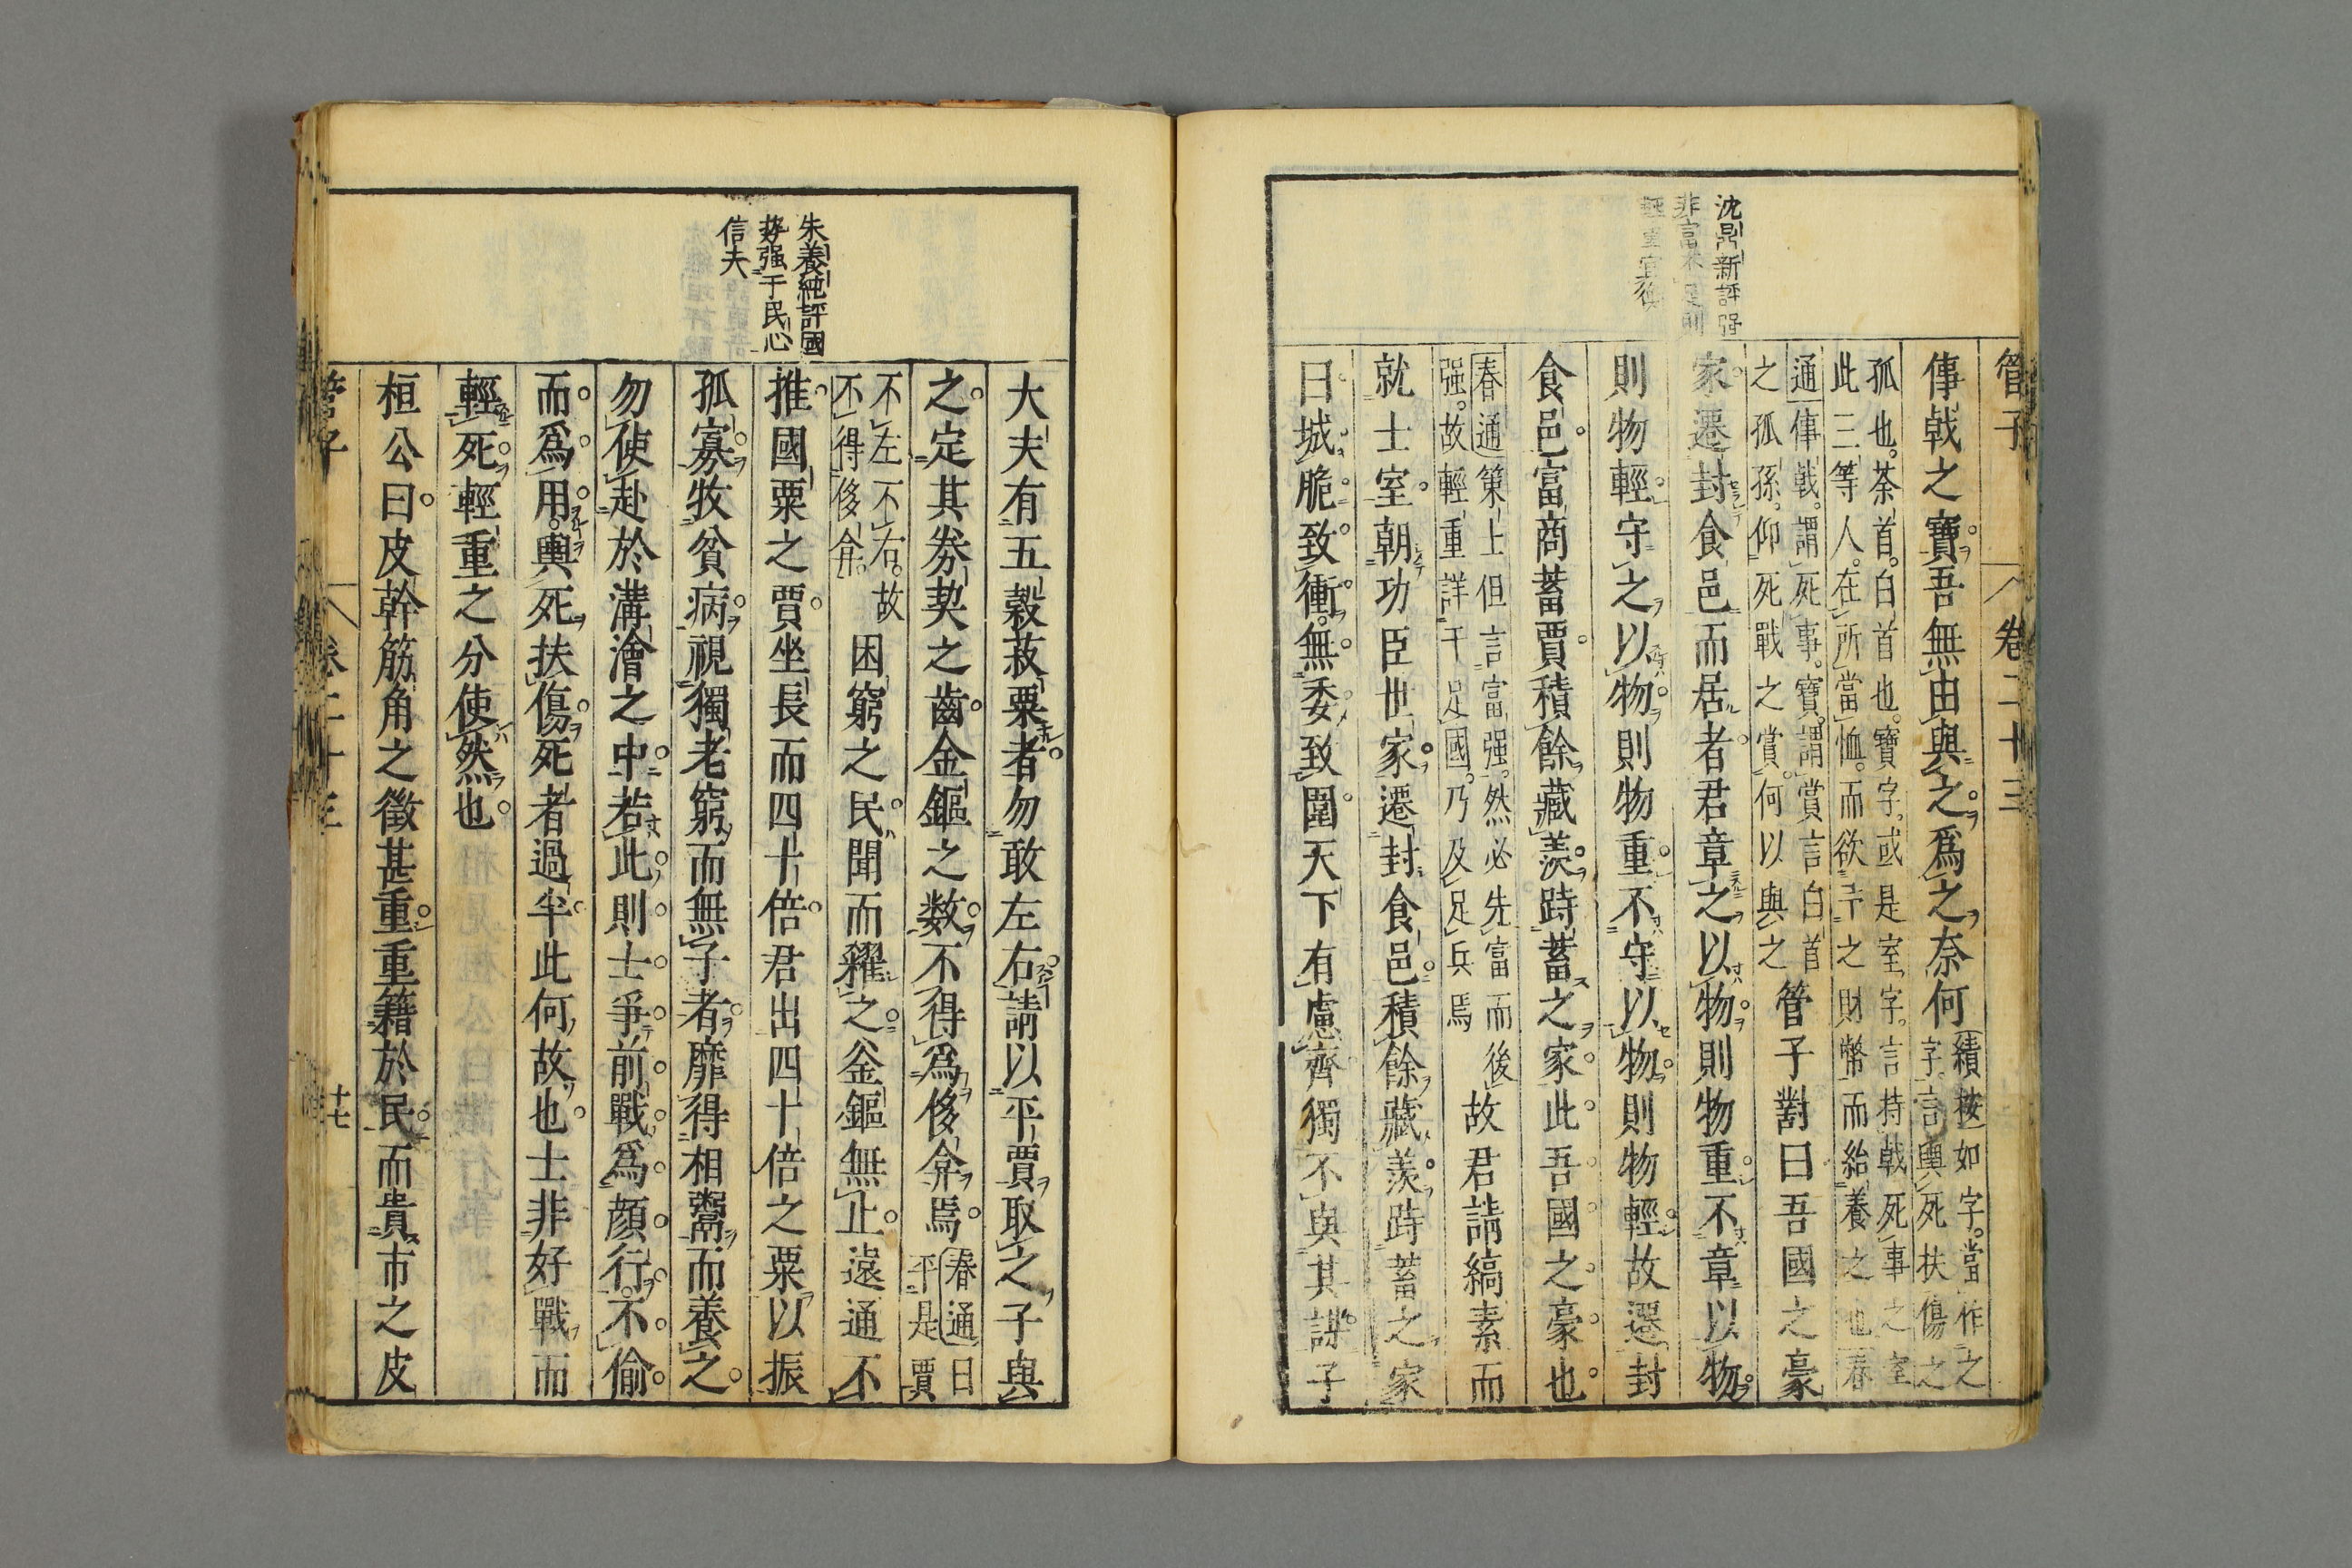 管子
卷二十三
沈鼎新評强
非富不足則
輕重宜復
傳戟之寶吾無由與之爲之奈何
續按如字當作之
字言輿死扶傷之
孤也荼首白首也寶字或是室字言持戟死事之室
此三等人在所當恤而欲予之財幣而給養之也春
通傳戟謂死事寶謂賞言白首
之孤孫仰死戰之賞何以與之
管子對曰吾國之豪
家遷封食邑而居者君章之以物則物重不章以物
則物輕守之以物則物重不守以物則物輕故遷封
食邑富商蓄賈積餘藏羨跱蓄之家此吾國之豪也
春通策上但言富强然必先富而後
强故輕重詳于足國乃及足兵焉
故君請縞素而
就士室朝功臣世家遷封食邑積餘藏羨跱蓄之家
曰城脆致衝無委致圍天下有慮齊獨不與其謀子
朱養純評國
勢强于民心
信夫
大夫有五穀菽粟者勿敢左右請以平賈取之子與
之定其券契之齒金鏂之数不得爲侈弇焉
春通曰
平是賈
不左不右故
不得侈弇
困窮之民聞而糴之釜鏂無止遠通不
推國粟之賈坐長而四十倍君出四十倍之粟以振
孤寡牧貧病視獨老窮而無子者靡得相鬻而養之
勿使赴於溝澮之中若此則士爭前戰爲顔行不偷
而爲用輿死扶傷死者過半此何故也士非好戰而
輕死輕重之分使然也
桓公曰皮幹筋角之徵甚重重籍於民而貴市之皮
管子
卷二十三
十七